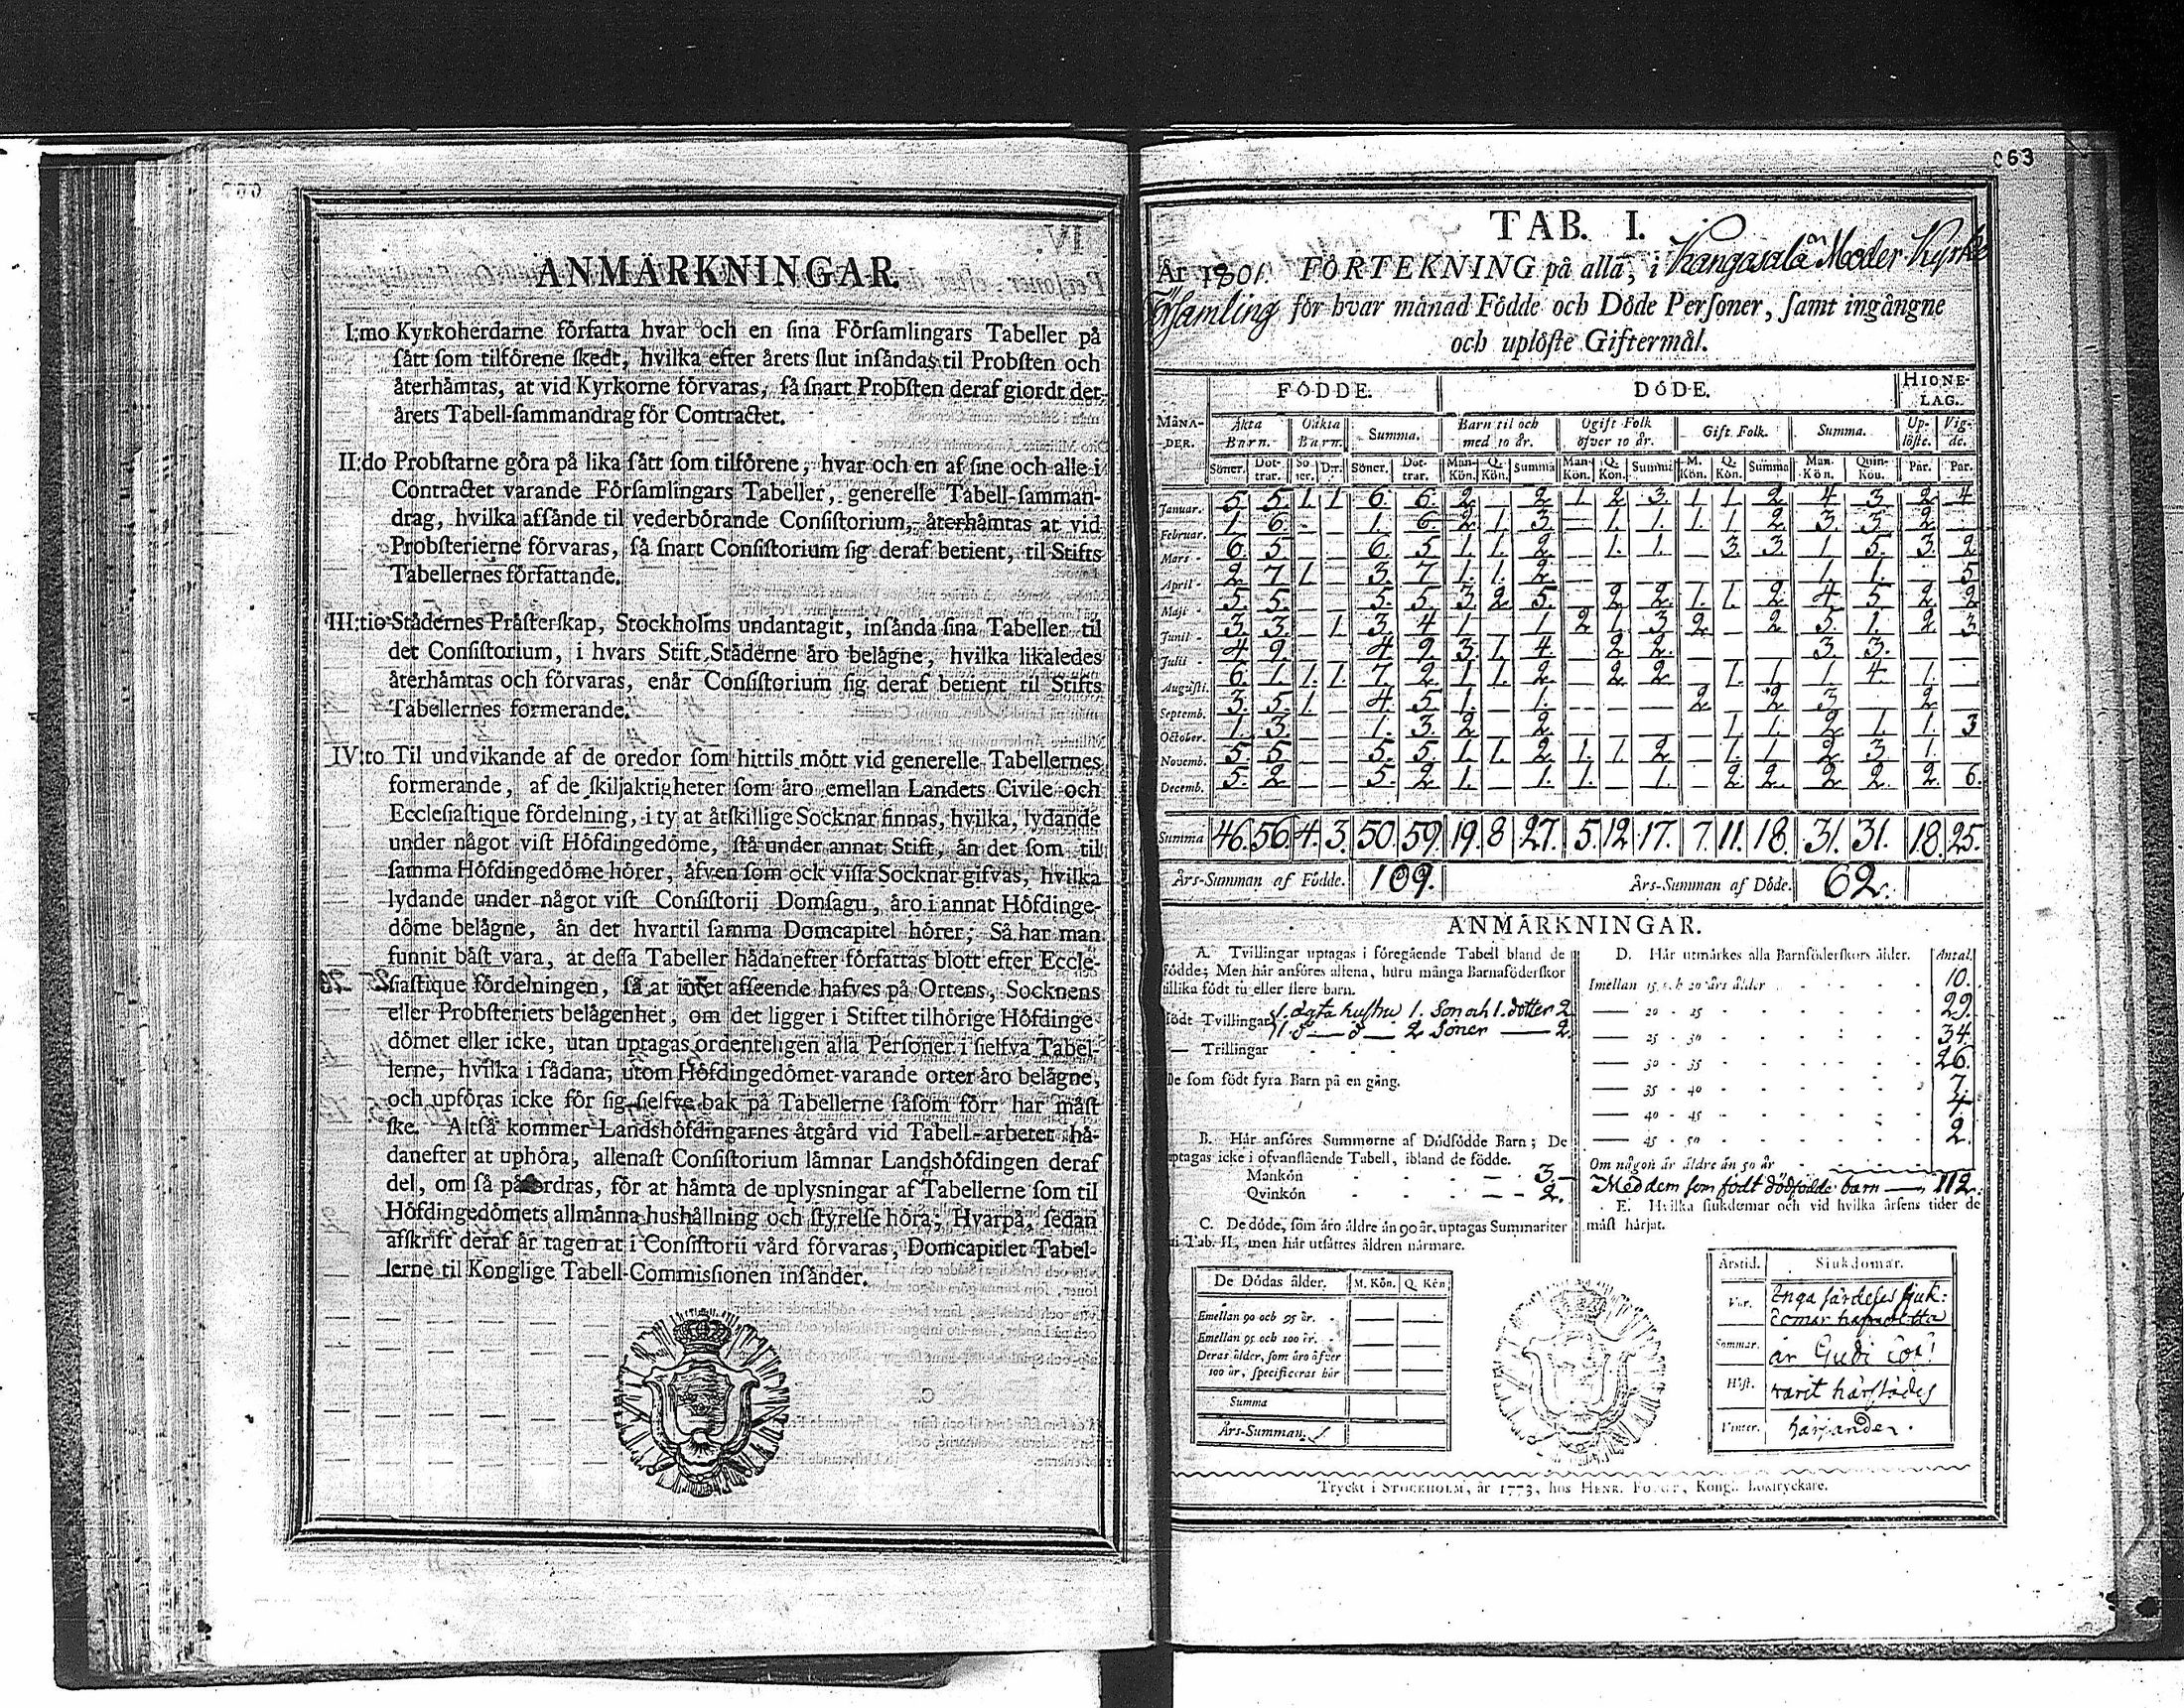 ANMÄRKNINGAR.
I:mo Kyrkoherdarne författa hvar och en sina Församlingars Tabeller på
sätt som tilförene skedt, hvilka efter årets slut insändas til Probsten och
återhämtas, at vid Kyrkorne förvaras, så snart Probsten deraf giordt det
årets Tabell-sammandrag för Contractet.
II:do Probstarne göra på lika sätt som tilförene, hvar och en af sine och alle i
Contractet varande Församlingars Tabeller, generelle Tabell-samman-
drag, hvilka afsände til vederbörande Consistorium, återhämtas at vid
Probsterierne förvaras, så snart Consistorium sig deraf betient, til Stifts
Tabellernes författande.
III:tio Städernes Prästerskap, Stockholms undantagit, insända sina Tabeller til
det Consistorium, i hvars Stift Städerne äro belägne, hvilka likaledes
återhämtas och förvaras, enär Consistorium sig deraf betient til Stifts
Tabellernes formerande.
IV:to Til undvikande af de oredor som hittils mött vid generelle Tabellernes
formerande, af de skiljaktigheter som äro emellan Landets Civile och
Ecclesiastique fördelning, i ty at åtskillige Socknar finnas, hvilka, lydande
under något vist Höfdingedöme, stå under annat Stift, än det som til
samma Höfdingedöme hörer, äfven som ock vissa Socknar gifvas, hvilka
lydande under något vist Consistorii Domsagu, äro i annat Höfdinge-
döme belägne, än det hvartil samma Domcapitel hörer; Så har man
funnit bäst vara, at dessa Tabeller hädanefter författas blott efter Eccle-
siastique fördelningen, så at intet afseende hafves på Ortens, Socknens
eller Probsteriets belägenhet, om det ligger i Stiftet tilhörige Höfdinge-
dömet eller icke, utan uptagas ordenteligen alla Personer i sielfva Tabel-
lerne, hvilka i sådana, utom Höfdingedömet varande orter äro belägne,
och upföras icke för sig sielfve bak på Tabellerne såsom förr har måst
ske. Altså kommer Landshöfdingarnes åtgärd vid Tabell-arbetet hä-
danefter at uphöra, allenast Consistorium lämnar Landshöfdingen deraf
del, om så påfordras, för at hämta de uplysningar af Tabellerne som til
Höfdingedömets allmänna hushållning och styrelse höra; Hvarpå, sedan
afskrift deraf är tagen at i Consistorii vård förvaras, Domcapitlet Tabel-
lerne til Konglige Tabell-Commissionen insänder.
063
TAB. I.
År 1801. FÖRTEKNING på alla, i Kangasala Moder Kyrko
församling för hvar månad Födde och Döde Personer, samt ingångne
och uplöste Giftermål.
MÅNA-DER. FÖDDE. DÖDE. HIONE-LAG.
Äkta Barn. Oäkta Barn. Summa. Barn til och med 10 år. Ogift Folk öfver 10 år. Gift Folk. Summa. Up-löste. Vig-de.
Söner. Döt-trar. Sö-ner. D:r. Söner. Döt-trar. Man-Kön. Q. Kön. Summa Man-Kön. Q. Kön. Summa M. Kön. Q. Kön. Summa Man-Kön. Quin-Kön. Par. Par.
Januar. 5 5 1. 1 6. 6. 2 — 2 1 2 3 1 1 2 4 3 2 4
Februar. 1 6 — — 1. 6. 2 1 3 — 1. 1. 1. 1 2 3. 3 2 —
Mars - 6. 5 — — 6. 5 1. 1. 2 — 1. 1. — 3. 3 1 5. 3. 2
April - 2 7 1. — 3. 7 1. 1. 2 — — — — — — 1 1. — 5
Maji - 5. 5. — — 5. 5. 3 2 5. — 2 2. 1. 1. 2 4 5 2 2
Junii - 3. 3. — 1. 3. 4 1 — 1 2 1. 3 2. — 2 5. 1. 2 3
Julii - 4 9. — — 4 9. 3 1. 4 — 2 2. — — — 3. 3. — —
Augusti. 6. 1. 1. 1. 7. 2 1. 1. 2 — 2 2 — 1. 1. 1 4 1. —
Septemb. 3. 5. 1. — 4 5 1. — 1. — — — 2 — 2 3 — 2 —
October. 1. 3. — — 1. 3. 2 — 2 — — — — 1 1. 2 1. 1. 3
Novemb. 5. 5 — — 5. 5 1. 1. 2 1. 1 2 — 1. 1 2 3 1.
Decemb. 5. 2 — — 5. 2 1. — 1. 1. — 1. — 2 2. 2 2. 2. 6.
Summa 46. 56. 4. 3. 50. 59. 19. 8 27. 5. 12 17. 7. 11. 18. 31. 31. 18. 25.
Års-Summan af Födde. 109. Års-Summan af Döde. 62.
ANMÄRKNINGAR.
A. Tvillingar uptagas i föregående Tabell bland de
födde; Men här anföres allena, huru många Barnaföderskor
tillika födt tu eller flere barn.
födt Tvillingar 1. ägta hustru 1. Son och 1. dotter 2
1. d — d — 2 Söner — 2.
— Trillingar
De som födt fyra Barn på en gång.
B. Här anföres Summorne af Dödfödde Barn; De
uptagas icke i ofvanstående Tabell, ibland de födde.
Mankön - - - 3.
Qvinkön - - - 2.
C. De döde, som äro äldre än 90 år, uptagas Summariter
i Tab. II, men här utsättes åldren närmare.
De Dödas ålder. M. Kön. Q. Kön
Emellan 90 och 95 år. — —
Emellan 95 och 100 år. — —
Deras ålder, som äro öfver — —
100 år, specificeras här — —
Summa
Års-Summan.
D. Här utmärkes alla Barnföderskors ålder. Antal.
Emellan 15 och 20 års ålder 10.
— 20 - 25 29.
— 25 - 30 34.
— 30 - 35 26.
— 35 - 40 7.
— 40 - 45 4
— 45 - 50 2.
Om någon är äldre än 50 år
Med dem som födt dödfödde barn — 112.
E. Hvilka siukdomar och vid hvilka årsens tider de
mäst härjat.
Årstid. Siukdomar.
Vår. Inga särdeles sjuk-
domar hafva detta
Sommar. år Gudi lof!
Höst. varit härstädes
Vinter. härjander.
Tryckt i STOCKHOLM, år 1773, hos HENR. FOUGT, Kongl. Boktryckare.